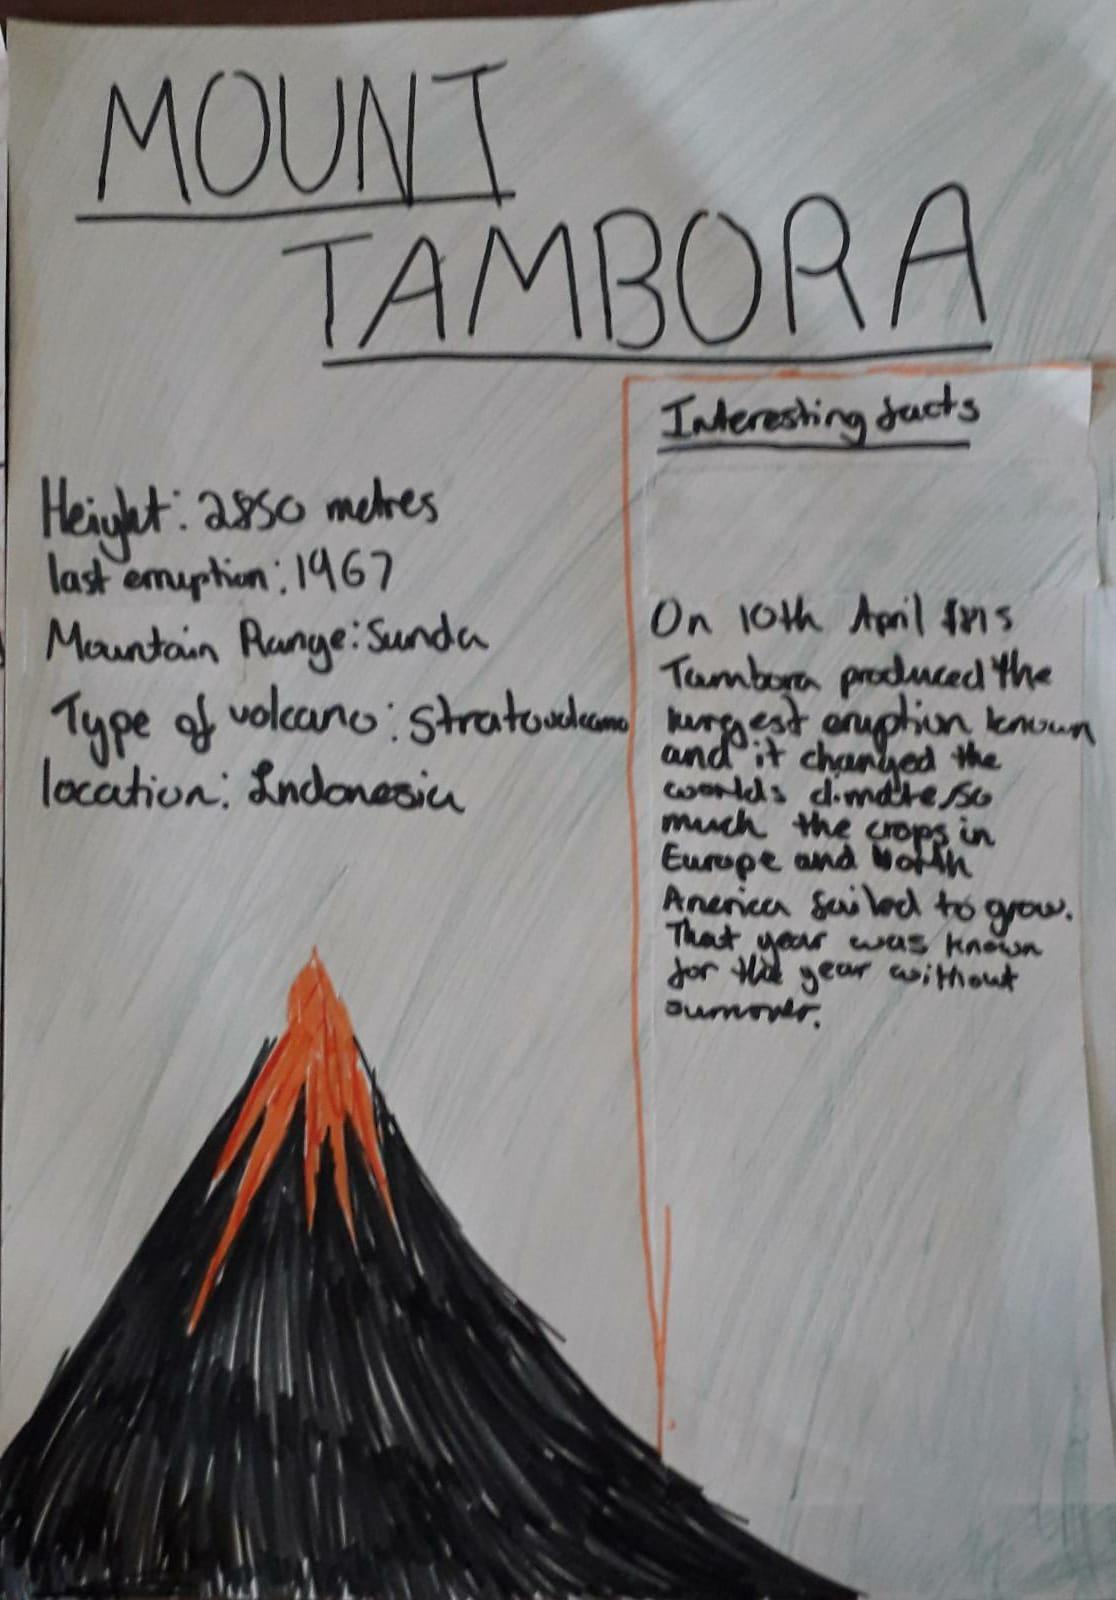 MOUNT
TAMBORA
Height: 2850 metres
last erruption: 1967
Mountain Range: Sunda
Type of volcano: Stratovolcano
location: Indonesia
Interesting facts
On 10th April 1815
Tambora produced the
largest eruption known
and it changed the
worlds climate so
much the crops in
Europe and North
America failed to grow.
That year was known
for the year without
summer.